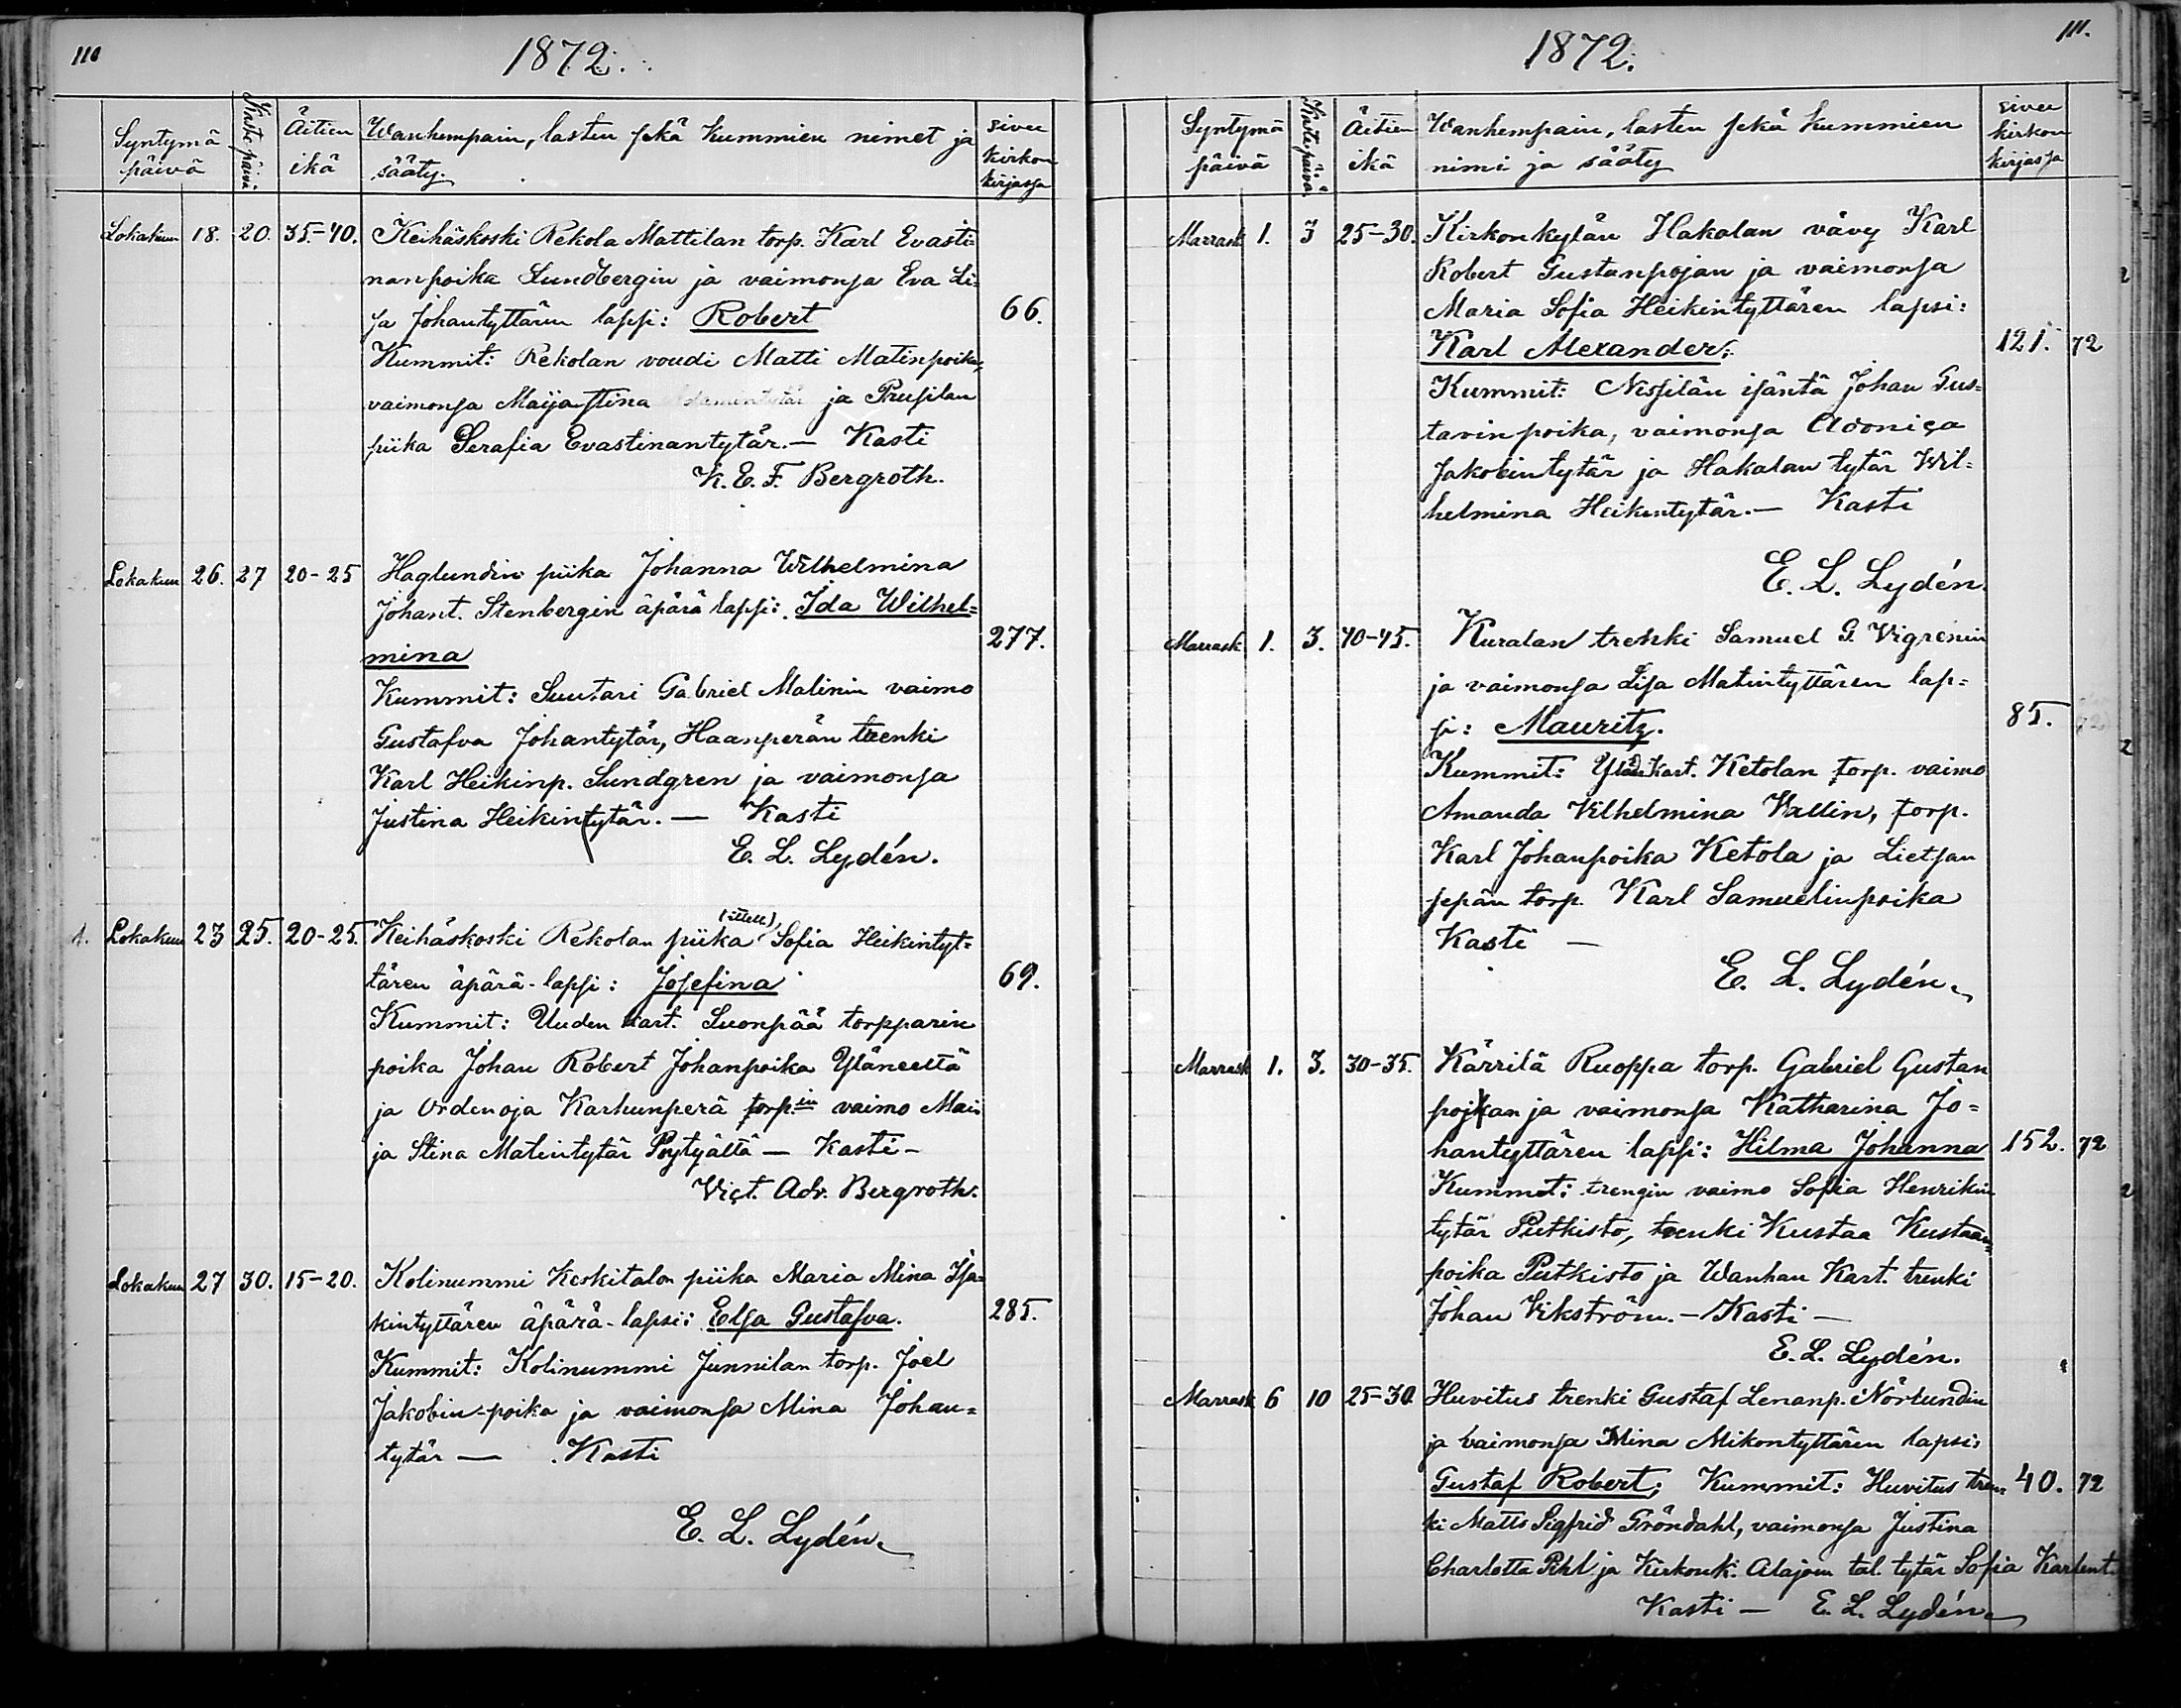 110
1872.
Syntymä päivä
Kaste päivä
Äitien ikä
Wanhempain, lasten sekä kummien nimet ja sääty.
sivu kirkon kirjassa
Lokakuun 18. 20. 35-40. Keihäskoski Rekola Mattilan torp. Karl Evasti=
nanpoika Lundbergin ja vaimonsa Eva Li=
sa Johantyttären lapsi: Robert 66.
Kummit: Rekolan voudi Matti Matinpoika,
vaimonsa Maija Stina ja Prusilan
piika Serafia Evastinantytär. — Kasti
K. E. F. Bergroth.
Lokakuun 26. 27 20-25 Haglundin piika Johanna Wilhelmina
Johant. Stenbergin äpärä lapsi: Ida Wilhel=
mina 277.
Kummit: Suutari Gabriel Malinin vaimo
Gustafva Johantytär, Haanperän trenki
Karl Heikinp. Sundgren ja vaimonsa
Justina Heikintytär. — Kasti
E. L. Lydén.
1. Lokakuun 23 25. 20-25. Keihäskoski Rekolan piika Sofia Heikintyt=
tären äpärä-lapsi: Josefina 69.
Kummit: Uuden kart. Suonpää torpparin
poika Johan Robert Johanpoika Yläneeltä
ja Ordenoja Karhunperä torp:in vaimo Mai
ja Stina Matintytär Pöytyältä — Kasti —
Vict. Adr. Bergroth.
Lokakuun 27 30. 15-20. Kolinummi Keskitalon piika Maria Mina Isa=
kintyttären äpärä-lapsi: Elsa Gustafva. 285.
Kummit: Kolinummi Junnilan torp. Joel
Jakobin-poika ja vaimonsa Mina Johan=
tytär — Kasti
E. L. Lydén.
111.
1872.
Syntymä päivä
Kaste päivä
Äitien ikä
Wanhempain, lasten sekä kummien nimi ja sääty
sivu kirkon kirjassa
Marrask 1. 3 25-30. Kirkonkylän Hakalan vävy Karl
Robert Gustanpojan ja vaimonsa
Maria Sofia Heikintyttären lapsi:
Karl Alexander; 121. 72
Kummit: Nissilän isäntä Johan Gus=
tavinpoika, vaimonsa Adoniça
Jakobintytär ja Hakalan tytär Wil=
helmina Heikintytär. — Kasti
E. L. Lydén.
Marrask 1. 3. 40-45. Kuralan trenki Samuel G. Vigrenin
ja vaimonsa Lisa Matintyttären lap=
si: Mauritz. 85. 72
Kummit: kart. Ketolan torp. vaimo
Amanda Vilhelmina Wallin, torp.
Karl Johanpoika Ketola ja Lietsan
pepän torp. Karl Samuelinpoika
Kasti —
E. L. Lydén.
Marrask 1. 3. 30-35. Kärrilä Ruoppa torp. Gabriel Gustan
pojkan ja vaimonsa Katharina Jo=
hantyttären lapsi: Hilma Johanna 152. 72
Kummit: trengin vaimo Sofia Henrikin
tytär Putkisto, trenki Kustaa Kustaan=
poika Putkisto ja Wanhan Kart. trenki
Johan Vikström. — Kasti —
E. L. Lydén.
Marrask 6 10 25-30. Huvitus trenki Gustaf Lenanp. Nörlundin
ja vaimonsa Mina Mikontyttären lapsi:
Gustaf Robert; Kummit: Huvitus tren= 40. 72
ki Matts Sigfrid Gröndahl, vaimonsa Justina
Charlotta Pihl ja Kirkonk. Alajoen tal. tytär Sofia Karlent.
Kasti — E. L. Lydén